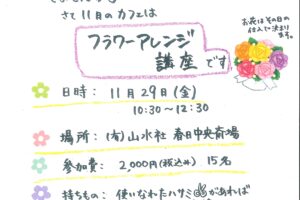 さて11月のカフェは
フラワーアレンジ
講座です
お花はその日の
仕入で決まり
ます。
日時: 11月29日(金)
10:30〜12:30
場所: (有)山水社 春日中央斎場
参加費: 2,000円(税込み) 15名
持ちもの: 使いなれたハサミがあれば